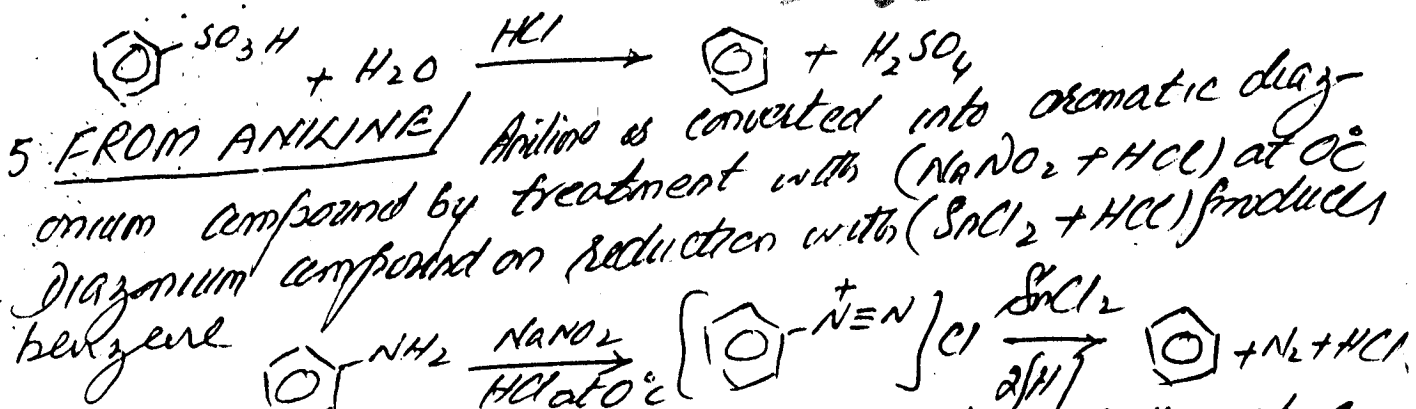 SO3H + H2O HCl → + H2SO4
5 FROM ANILINE/ Aniline is converted into aromatic diaz-
onium compound by treatment with (NaNO2 + HCl) at 0°C
Diazonium compound on reduction with (SnCl2 + HCl) produces
benzene
NH2 NaNO2 HCl at 0°C → [ -N+≡N ] Cl SnCl2 2[H] → + N2 + HCl